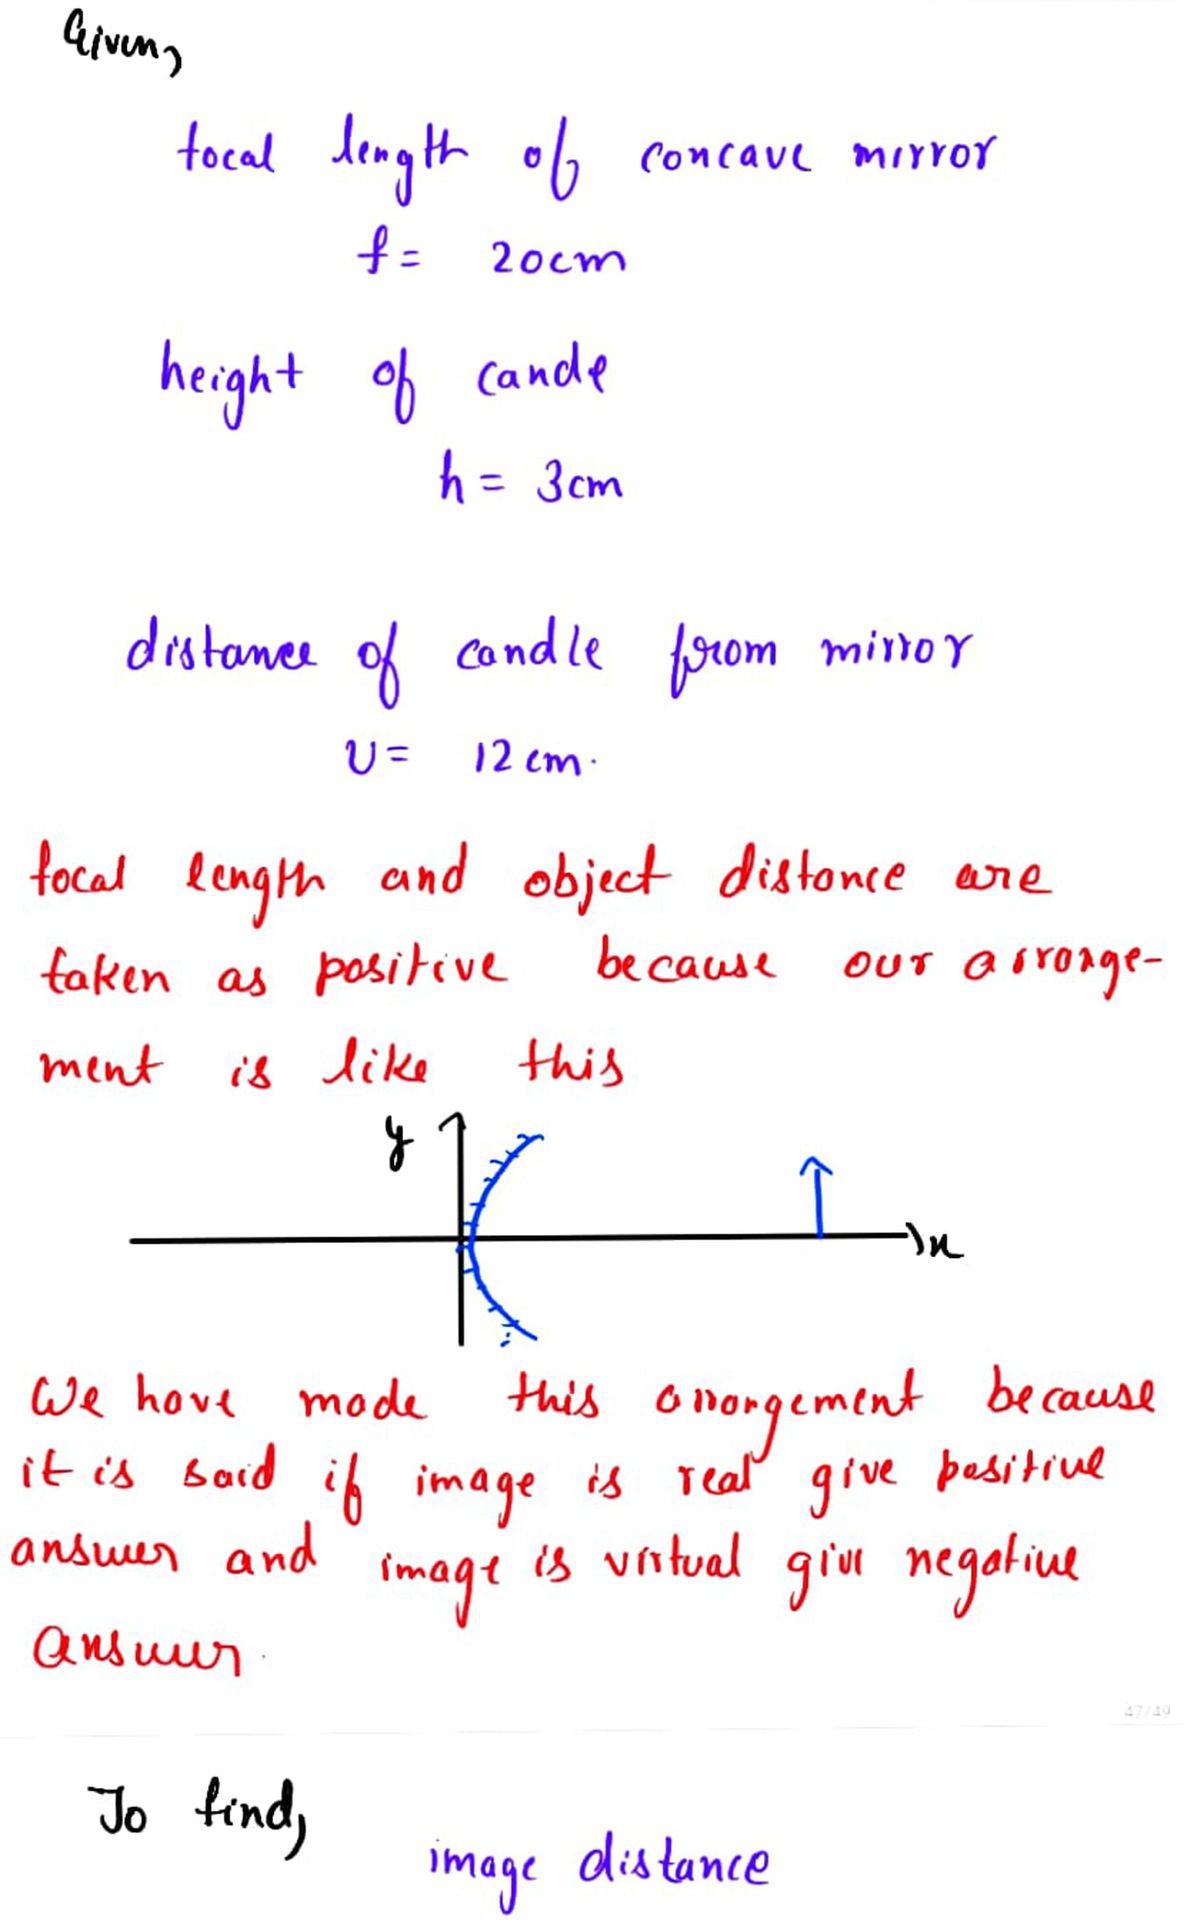 Given,
focal length of concave mirror
f = 20cm
height of cande
h = 3cm
distance of candle from mirror
U = 12 cm.
focal length and object distance are
taken as positive because our arrange-
ment is like this
y
x
We have made this arrangement because
it is said if image is real give positive
answer and image is virtual give negative
answer.
47/49
To find,
image distance